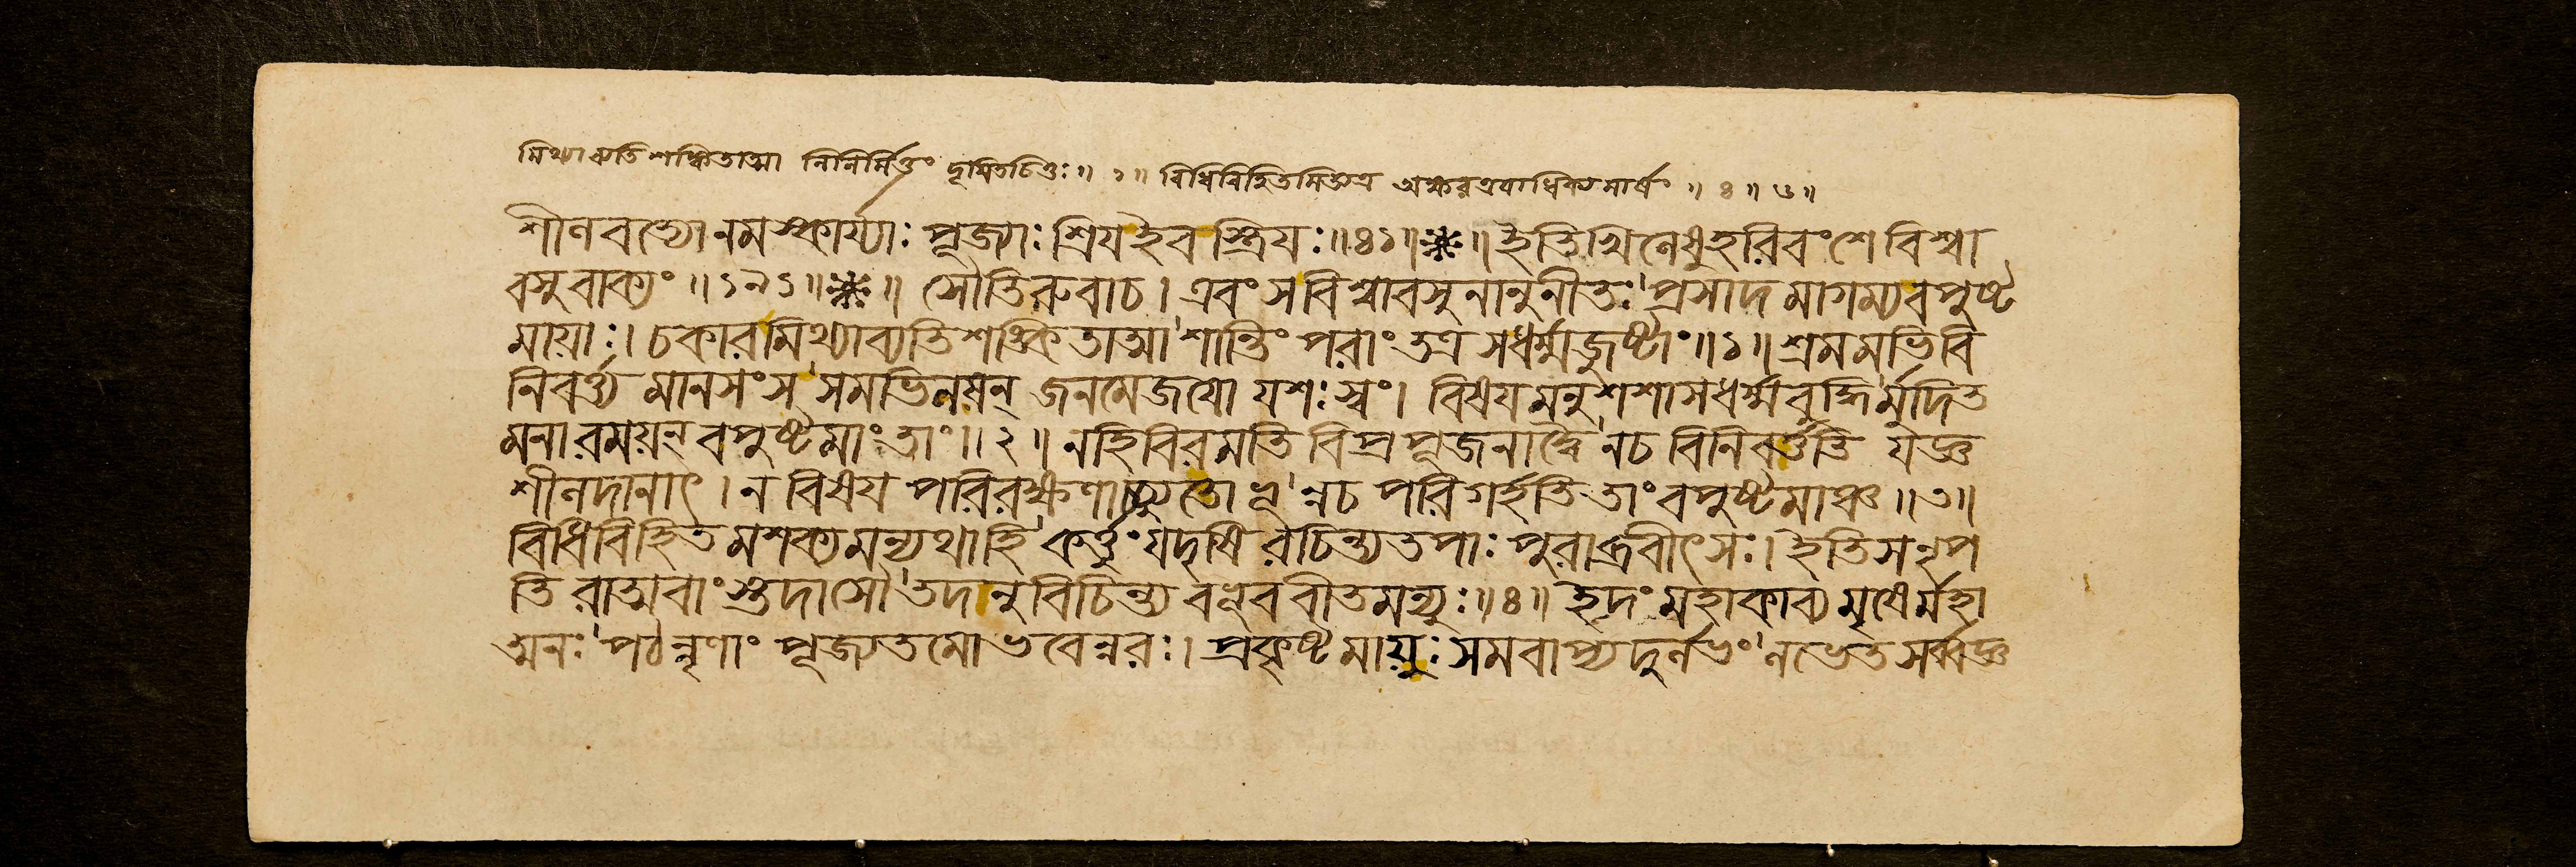 মিথ্যাব্যতিশঙ্কিতাত্মা নির্নিমিত্তং দূষিতচিত্তঃ॥ ১॥ বিধিবিহিতমিত্যত্র অক্ষরত্রয়াধিক্যমার্ষং ॥ ৪ ॥
শীলবত্যোনমস্কার্য্যাঃ পূজ্যাঃ শ্রিয়ইব স্ত্রিয়ঃ॥৪১॥ ॥ইতিখিলেষুহরিবংশে বিশ্বা
বসুবাক্যং ॥১৯১॥ ॥ সৌতিরুবাচ। এবং সবিশ্বাবসুনানুনীতঃ' প্রসাদমাগম্যবপুষ্ট
মায়াঃ। চকারমিথ্যাব্যতিশঙ্কিতাত্মা'শান্তিং পরাং তত্র সধর্ম্মজুষ্টাং॥১॥ শ্রমমভিবি
নিবর্ত্ত্য মানসংস'সমভিলষন্ জনমেজয়ো যশঃস্বং। বিষয়মনুশশাসধর্ম্মবুদ্ধি'র্মুদিত
মনারময়ন্ বপুষ্টমাং তাং॥২॥ নহিবিরমতি বিপ্রপূজনাদ্বৈ'নচ বিনিবর্ত্ততি যজ্ঞ
শীলদানাৎ। ন বিষয় পরিরক্ষণাচ্চ্যুতোভূ'ন্নচ পরিগর্হতি তাং বপুষ্টমাঞ্চ॥৩॥
বিধিবিহিতমশক্যমন্যথাহি'কর্ত্তুং যদৃষি রচিন্ত্যতপাঃ পুরাব্রবীৎসঃ। ইতিসনৃপ
তি রাত্মবাংস্তদাসৌ'তদানুবিচিন্ত্য বভূববীতমন্যুঃ॥৪॥ ইদং মহাকাব্যমৃষের্মহা
ত্মনঃ'পঠন্নৃণাং পূজ্যতমোভবেন্নরঃ। প্রকৃষ্টমায়ুঃ সমবাপ্যদুর্লভং'লভেতসর্ব্বজ্ঞ